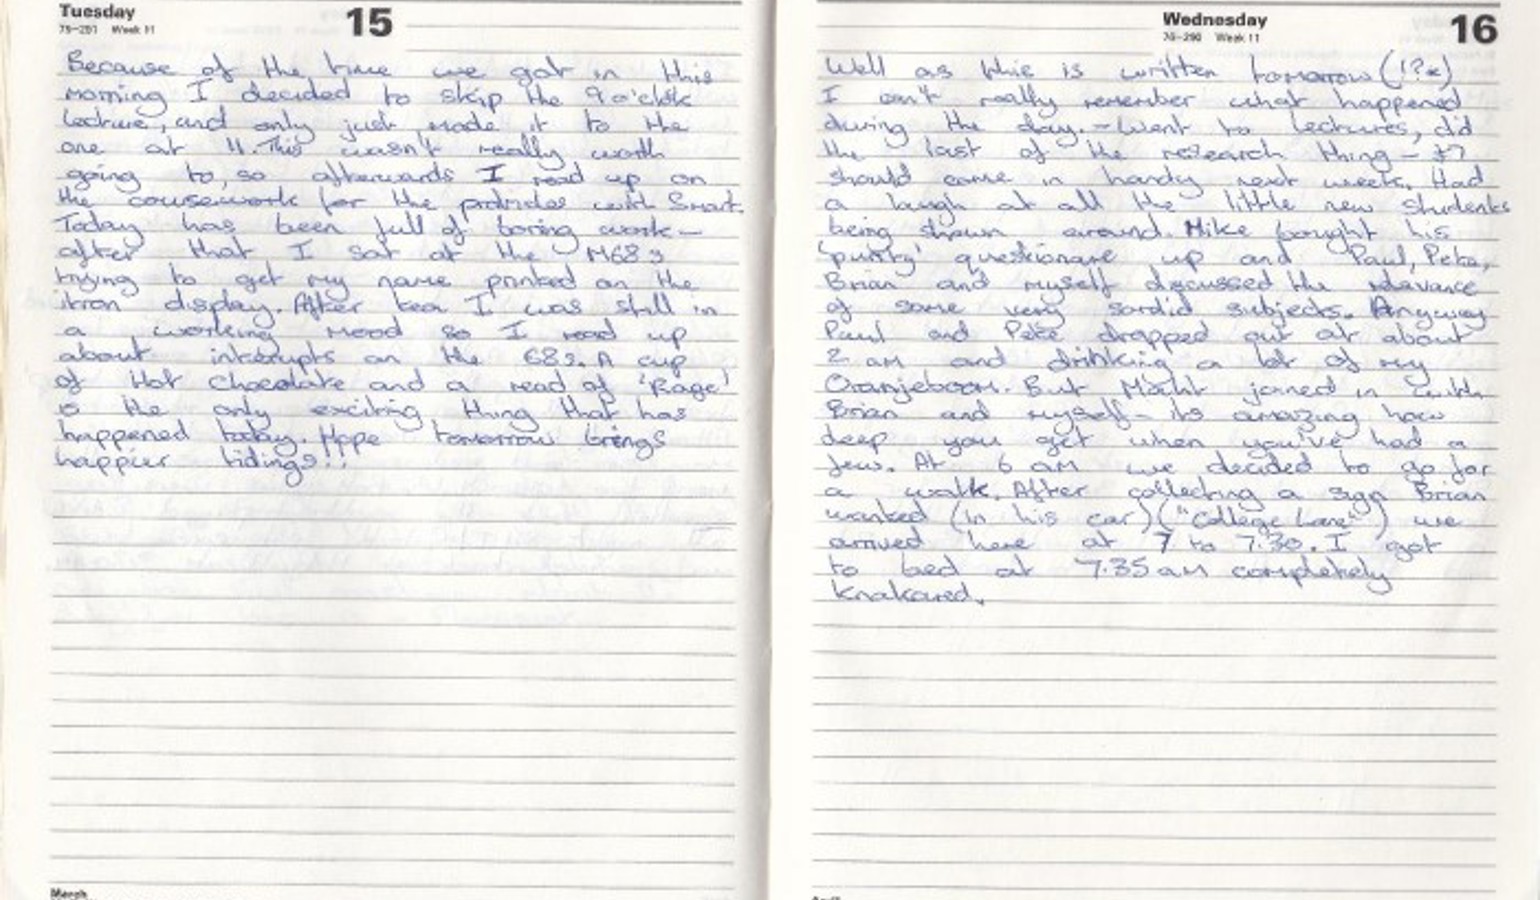 Tuesday 15
75-291 Week 11
Because of the time we got in this
morning I decided to skip the 9 o'clock
lecture, and only just made it to the
one at 11. This wasn't really worth
going to, so afterwards I read up on
the coursework for the practides with Smart.
Today has been full of boring work -
after that I sat at the M68s
trying to get my name printed on the
itron display. After tea I was still in
a working mood so I read up
about interrupts on the 68s. A cup
of Hot Chocolate and a read of 'Rage'
is the only exciting thing that has
happened today. Hope tomorrow brings
happier tidings!!
March
Wednesday 16
76-290 Week 11
Well as this is written tomorrow (!?*)
I can't really remember what happened
during the day. - Went to lectures, did
the last of the research thing -
should come in handy next week. Had
a laugh at all the little new students
being shown around. Mike bought his
'purity' questionare up and Paul, Pete,
Brian and myself discussed the relevance
of some very sordid subjects. Anyway
Paul and Pete dropped out at about
2 am and drinking a lot of my
Oranjeboom. But joined in with
Brian and myself - its amazing how
deep you get when you've had a
few. At 6 am we decided to go for
a walk. After collecting a sign Brian
wanted (in his car) ("College Lane") we
arrived here at 7 to 7.30. I got
to bed at 7.35 am completely
knakared.
April